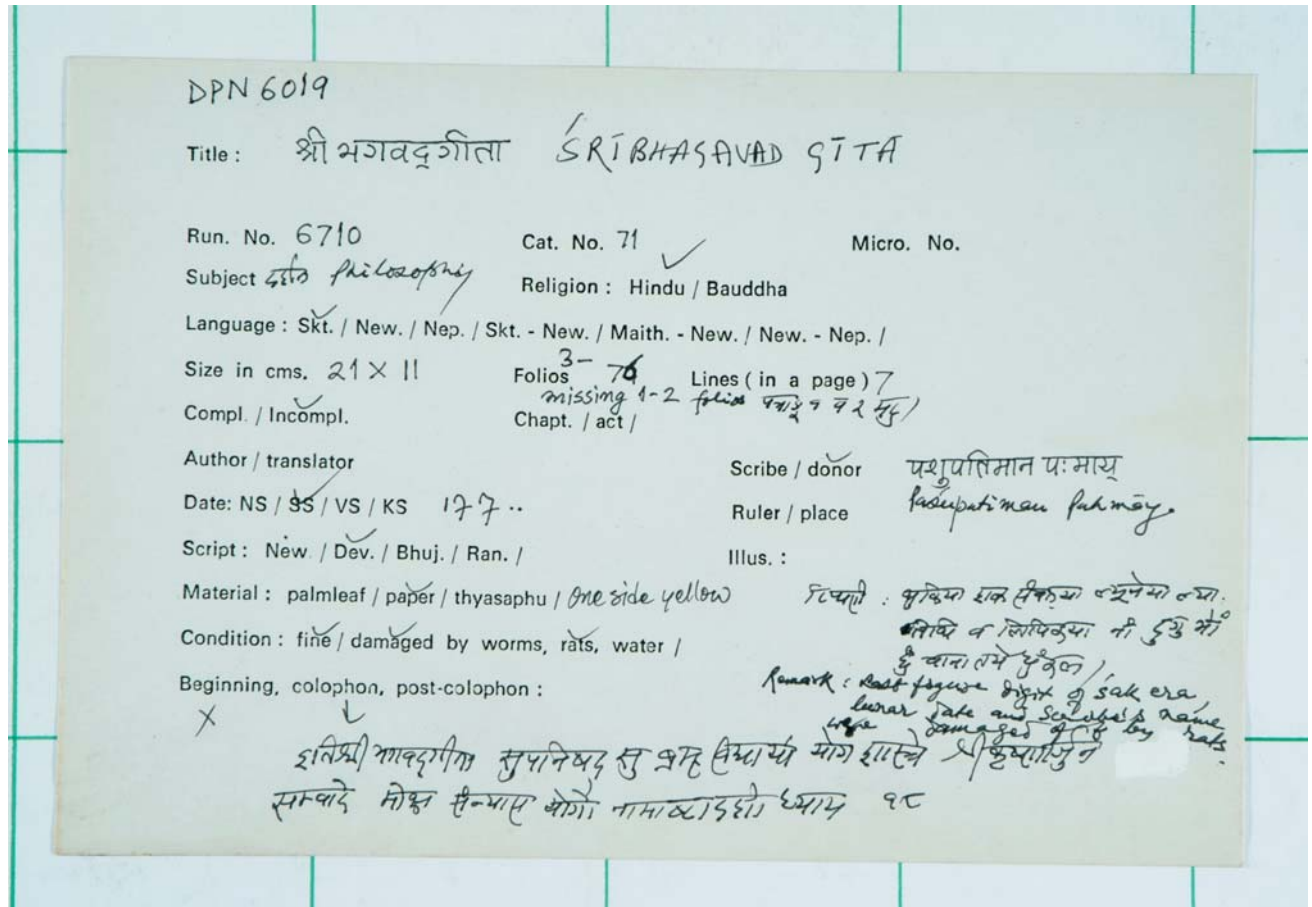 DPN 6019
Title : श्री भगवद्गीता ŚRĪBHAGAVAD GĪTĀ
Run. No. 6710 Cat. No. 71 Micro. No.
Subject दर्शन Philosophy Religion : Hindu / Bauddha
Language : Skt. / New. / Nep. / Skt. - New. / Maith. - New. / New. - Nep. /
Size in cms. 21 × 11 Folios 3 - 76 Lines ( in a page ) 7
missing 1-2 folios
Compl. / Incompl. Chapt. / act /
Author / translator Scribe / donor पशुपतिमान पःमाय्
Date: NS / SS / VS / KS 177.. Ruler / place Pasupatiman Pahmāy.
Script : New. / Dev. / Bhuj. / Ran. / Illus. :
Material : palmleaf / paper / thyasaphu / One side yellow
Condition : fine / damaged by worms, rats, water /
Beginning, colophon, post-colophon :
Remark : Last figure digit of Śak era,
lunar date and Scribe's name
were damaged by rats.
X
इतिश्री भगवद्गीता सुपनिषद सु ब्रह्म विद्यायां योग शास्त्रे श्रीकृष्णार्जुन
सम्वादे मोक्ष सन्यास योगो नामाष्टादशो ध्याय १८